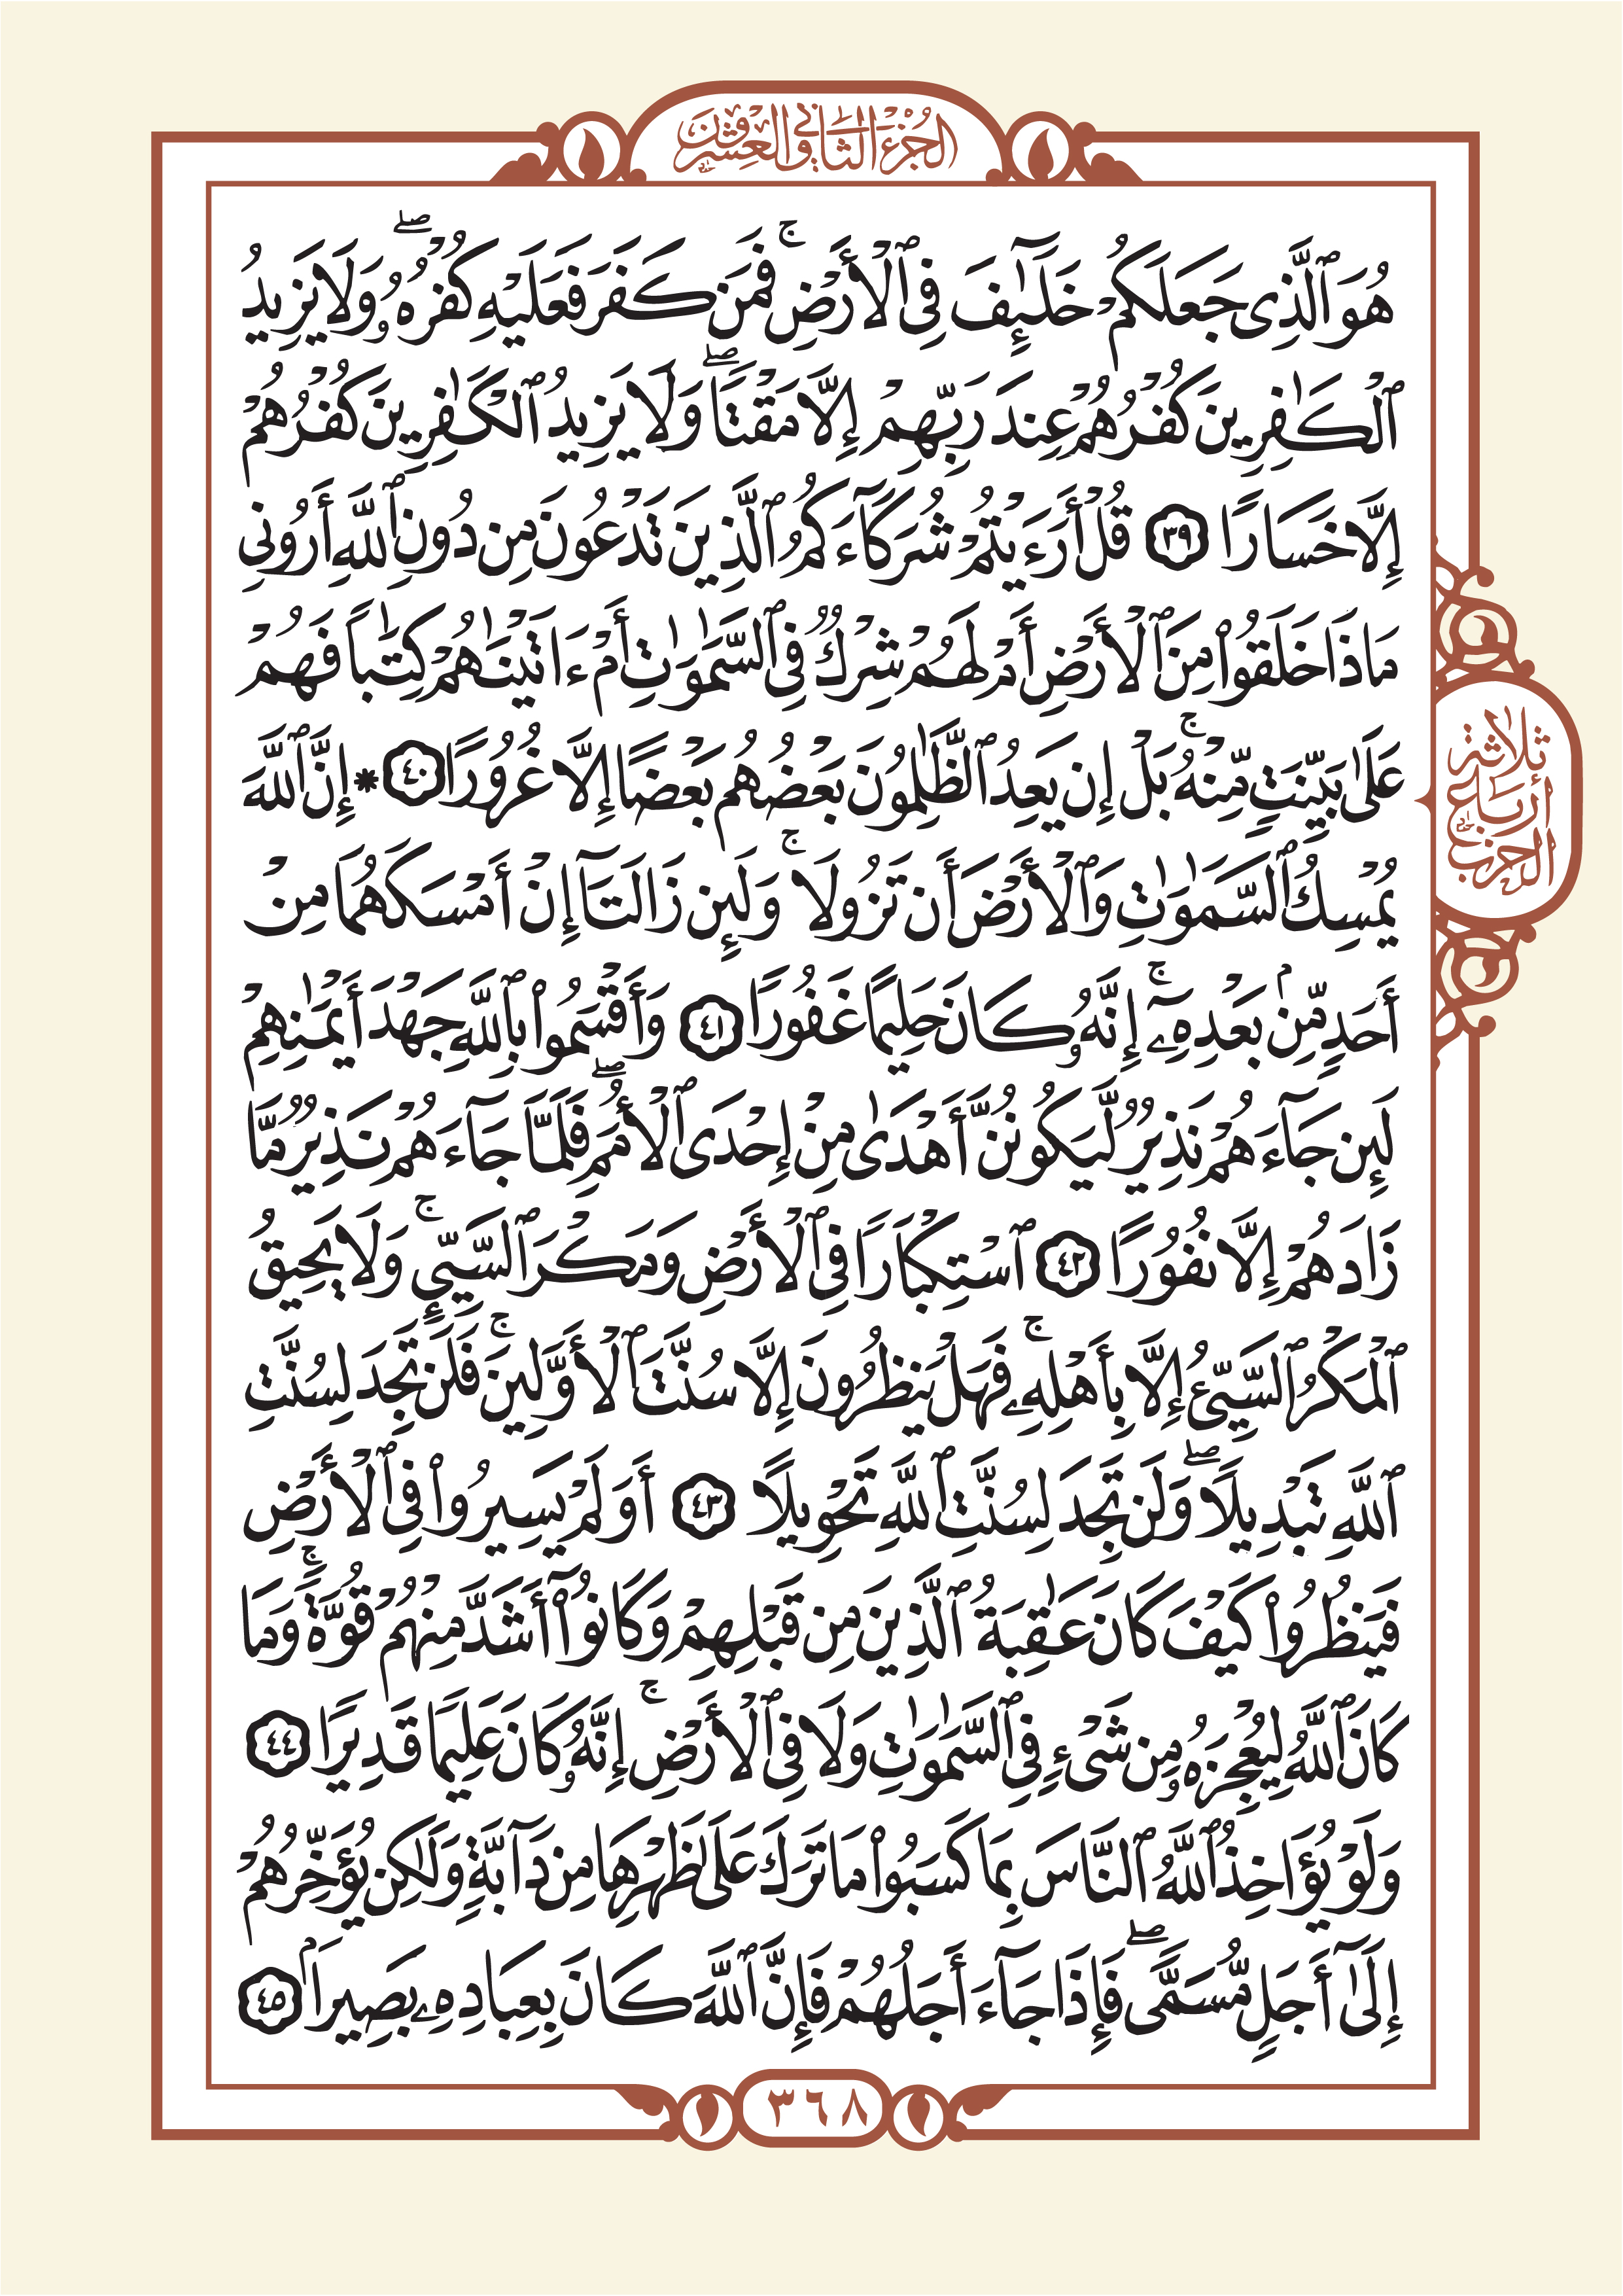 الجزء الثاني والعشرون
هُوَ ٱلَّذِى جَعَلَكُمْ خَلَـٰٓئِفَ فِى ٱلْأَرْضِ ۚ فَمَن كَفَرَ فَعَلَيْهِ كُفْرُهُۥ ۖ وَلَا يَزِيدُ
ٱلْكَـٰفِرِينَ كُفْرُهُمْ عِندَ رَبِّهِمْ إِلَّا مَقْتًا ۖ وَلَا يَزِيدُ ٱلْكَـٰفِرِينَ كُفْرُهُمْ
إِلَّا خَسَارًا ٣٩ قُلْ أَرَءَيْتُمْ شُرَكَآءَكُمُ ٱلَّذِينَ تَدْعُونَ مِن دُونِ ٱللَّهِ أَرُونِى
مَاذَا خَلَقُوا۟ مِنَ ٱلْأَرْضِ أَمْ لَهُمْ شِرْكٌ فِى ٱلسَّمَـٰوَٰتِ أَمْ ءَاتَيْنَـٰهُمْ كِتَـٰبًا فَهُمْ
عَلَىٰ بَيِّنَتٍ مِّنْهُ ۚ بَلْ إِن يَعِدُ ٱلظَّـٰلِمُونَ بَعْضُهُم بَعْضًا إِلَّا غُرُورًا ٤٠ * إِنَّ ٱللَّهَ
يُمْسِكُ ٱلسَّمَـٰوَٰتِ وَٱلْأَرْضَ أَن تَزُولَا ۚ وَلَئِن زَالَتَآ إِنْ أَمْسَكَهُمَا مِنْ
أَحَدٍ مِّنۢ بَعْدِهِۦٓ ۚ إِنَّهُۥ كَانَ حَلِيمًا غَفُورًا ٤١ وَأَقْسَمُوا۟ بِٱللَّهِ جَهْدَ أَيْمَـٰنِهِمْ
لَئِن جَآءَهُمْ نَذِيرٌ لَّيَكُونُنَّ أَهْدَىٰ مِنْ إِحْدَى ٱلْأُمَمِ ۖ فَلَمَّا جَآءَهُمْ نَذِيرٌ مَّا
زَادَهُمْ إِلَّا نُفُورًا ٤٢ ٱسْتِكْبَارًا فِى ٱلْأَرْضِ وَمَكْرَ ٱلسَّيِّئِ ۚ وَلَا يَحِيقُ
ٱلْمَكْرُ ٱلسَّيِّئُ إِلَّا بِأَهْلِهِۦ ۚ فَهَلْ يَنظُرُونَ إِلَّا سُنَّتَ ٱلْأَوَّلِينَ ۚ فَلَن تَجِدَ لِسُنَّتِ
ٱللَّهِ تَبْدِيلًا ۖ وَلَن تَجِدَ لِسُنَّتِ ٱللَّهِ تَحْوِيلًا ٤٣ أَوَلَمْ يَسِيرُوا۟ فِى ٱلْأَرْضِ
فَيَنظُرُوا۟ كَيْفَ كَانَ عَـٰقِبَةُ ٱلَّذِينَ مِن قَبْلِهِمْ وَكَانُوٓا۟ أَشَدَّ مِنْهُمْ قُوَّةً ۚ وَمَا
كَانَ ٱللَّهُ لِيُعْجِزَهُۥ مِن شَىْءٍ فِى ٱلسَّمَـٰوَٰتِ وَلَا فِى ٱلْأَرْضِ ۚ إِنَّهُۥ كَانَ عَلِيمًا قَدِيرًا ٤٤
وَلَوْ يُؤَاخِذُ ٱللَّهُ ٱلنَّاسَ بِمَا كَسَبُوا۟ مَا تَرَكَ عَلَىٰ ظَهْرِهَا مِن دَآبَّةٍ وَلَـٰكِن يُؤَخِّرُهُمْ
إِلَىٰٓ أَجَلٍ مُّسَمًّى ۖ فَإِذَا جَآءَ أَجَلُهُمْ فَإِنَّ ٱللَّهَ كَانَ بِعِبَادِهِۦ بَصِيرًۢا ٤٥
ثلاثة
أرباع
الحزب
٣٦٨